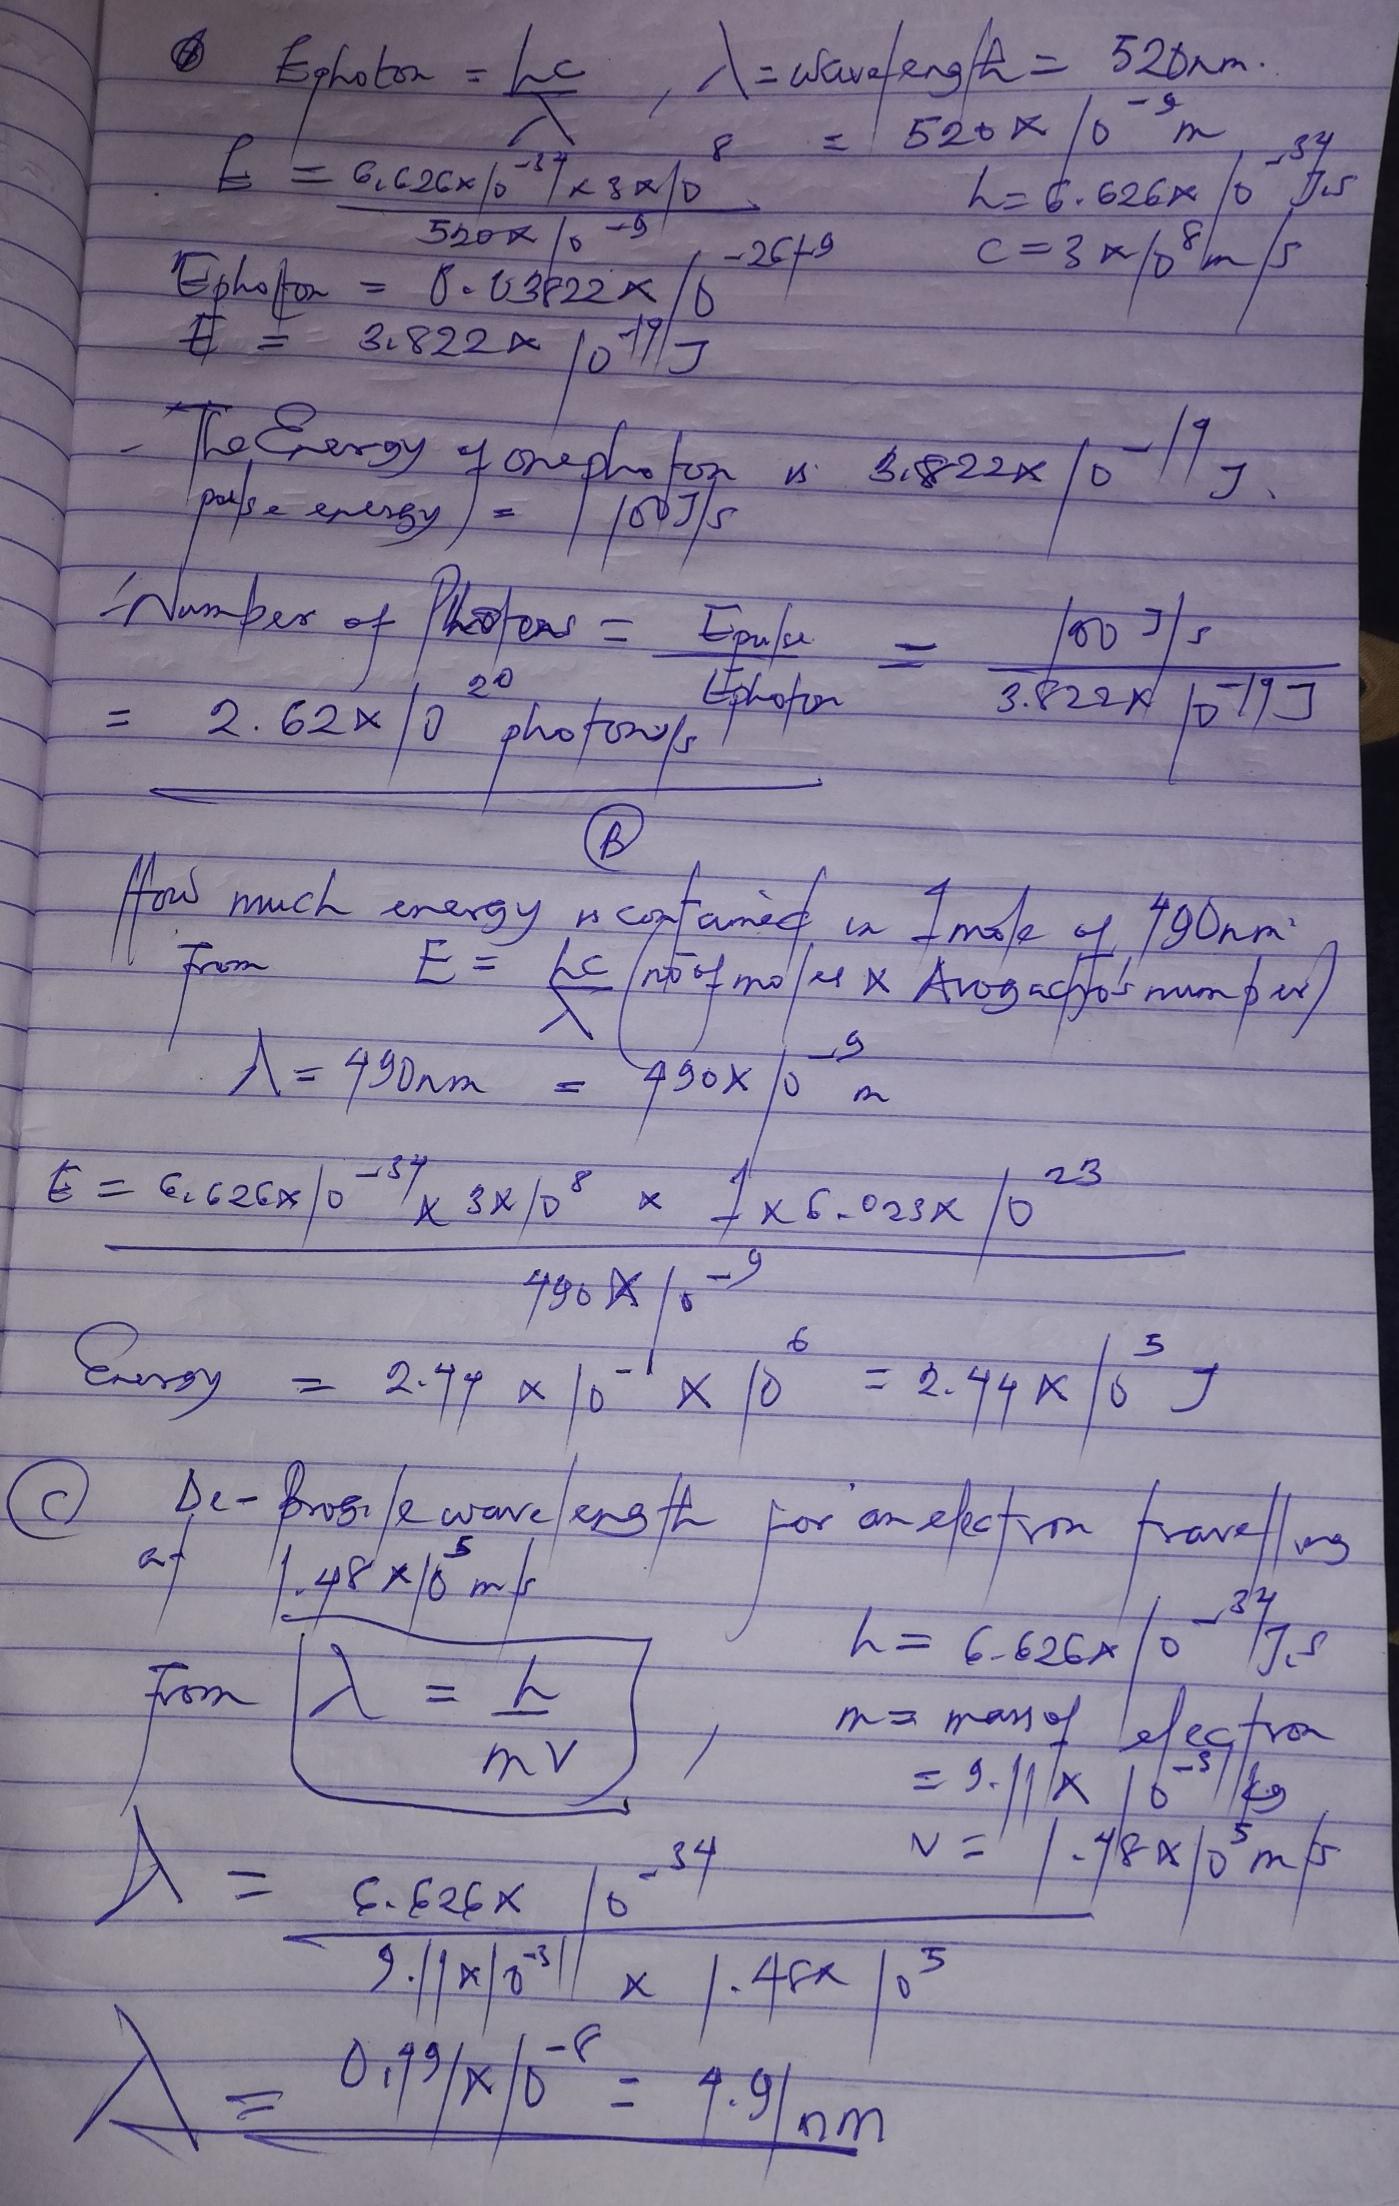 Ephoton = hc/λ , λ = wavelength = 520nm.
= 520 x 10^-9 m
E = 6.626x10^-34 x 3x10^8 / 520x10^-9
h = 6.626x10^-34 J.s
c = 3x10^8 m/s
Ephoton = 0.03822x10^-26+9
E = 3.822x10^-19 J
- The Energy of one photon is 3.822x10^-19 J.
pulse energy = 100J/s
Number of Photons = Epulse/Ephoton = 100J/s / 3.822x10^-19J
= 2.62x10^20 photons/s
(B)
How much energy is contained in 1 mole of 490nm
From E = hc/λ (no of moles x Avogadro's number)
λ = 490nm = 490x10^-9 m
E = 6.626x10^-34 x 3x10^8 x 1 x 6.023x10^23
490x10^-9
Energy = 2.44 x 10^-1 x 10^6 = 2.44x10^5 J
(C) De-Brogile wavelength for an electron travelling
at 1.48x10^5 m/s
h = 6.626x10^-34 J.s
From λ = h/mv ,
m = mass of electron
= 9.11x10^-31 kg
v = 1.48x10^5 m/s
λ = 6.626x10^-34
9.11x10^-31 x 1.48x10^5
λ = 0.491x10^-8 = 4.91nm